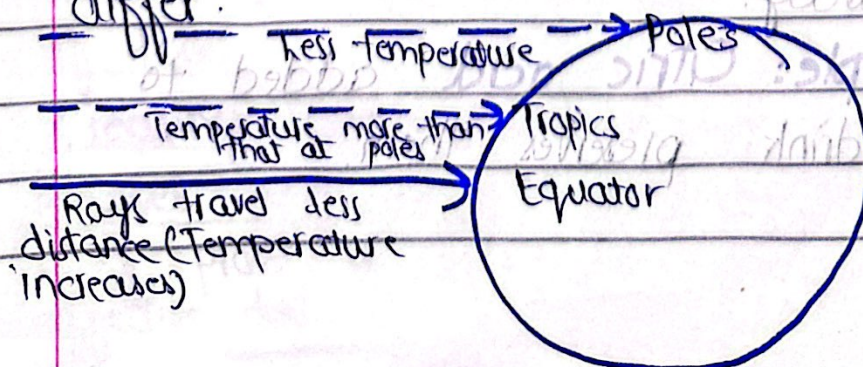 differ.
Less temperature
Poles
Temperature more than
that at poles
Tropics
Equator
Rays travel less
distance (Temperature
increases)